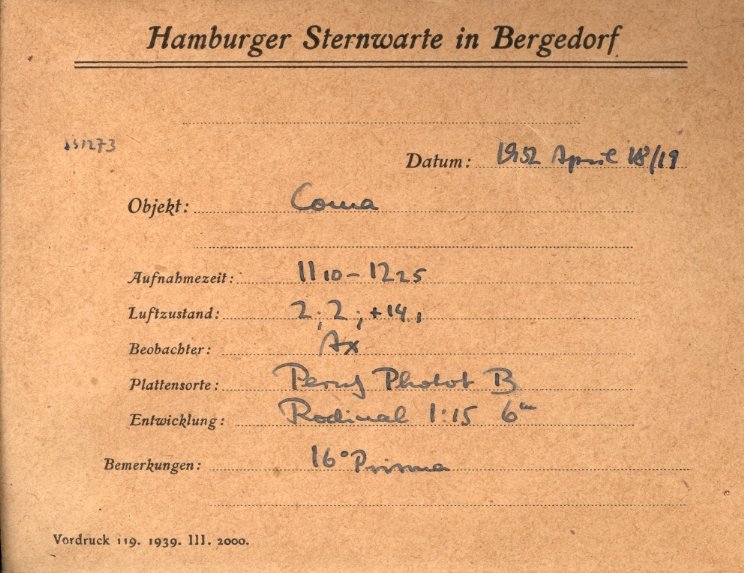 Hamburger Sternwarte in Bergedorf
Datum: 1952 April 18/19
Objekt: Coma
Aufnahmezeit: 11 10 – 12 25
Luftzustand: 2; 2; +14,1
Beobachter: Ax
Plattensorte: Perutz Photot B
Entwicklung: Rodinal 1:15 6m
Bemerkungen: 16° Prisma
Vordruck 119. 1939. III. 2000.